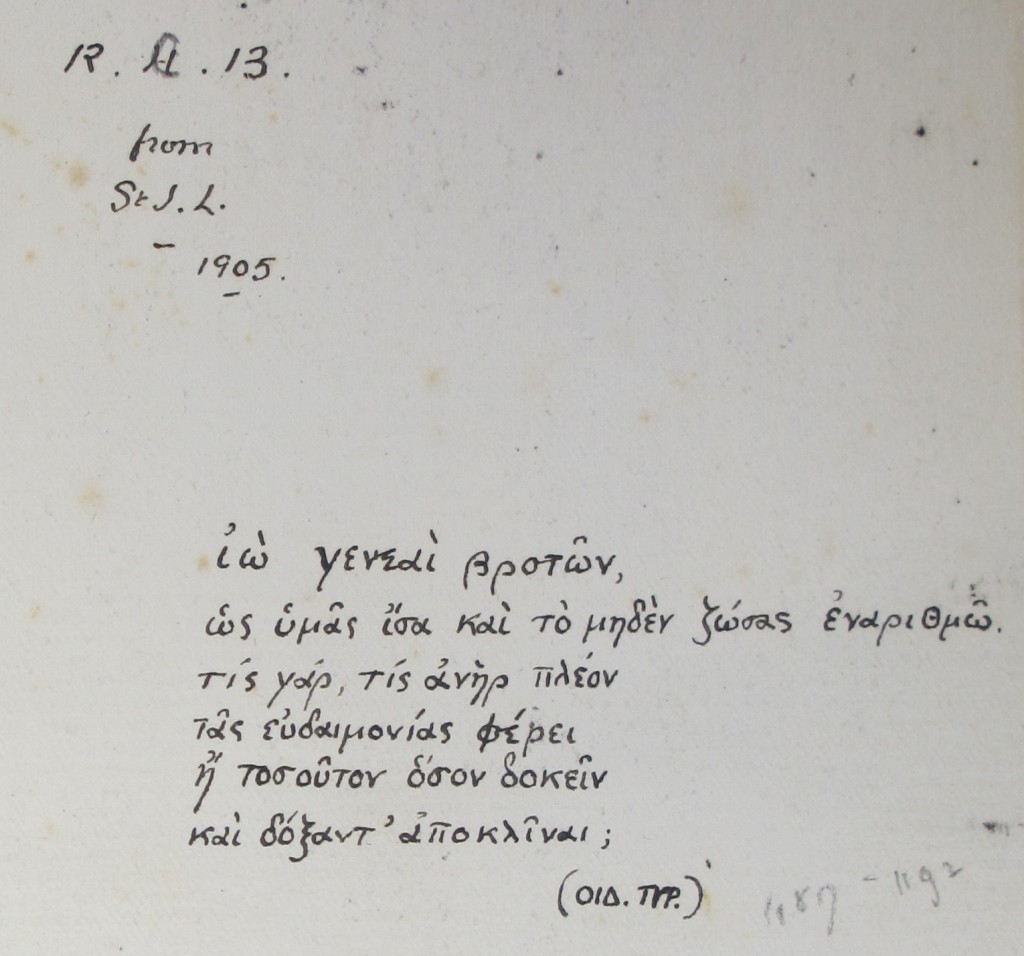 R. A. 13.
from
St J. L.
1905.
ἰὼ γενεαὶ βροτῶν,
ὡς ὑμᾶς ἴσα καὶ τὸ μηδὲν ζώσας ἐναριθμῶ.
τίς γάρ, τίς ἀνὴρ πλέον
τᾶς εὐδαιμονίας φέρει
ἢ τοσοῦτον ὅσον δοκεῖν
καὶ δόξαντ' ἀποκλῖναι;
(ΟΙΔ. ΤΥΡ.) 1187 - 1192